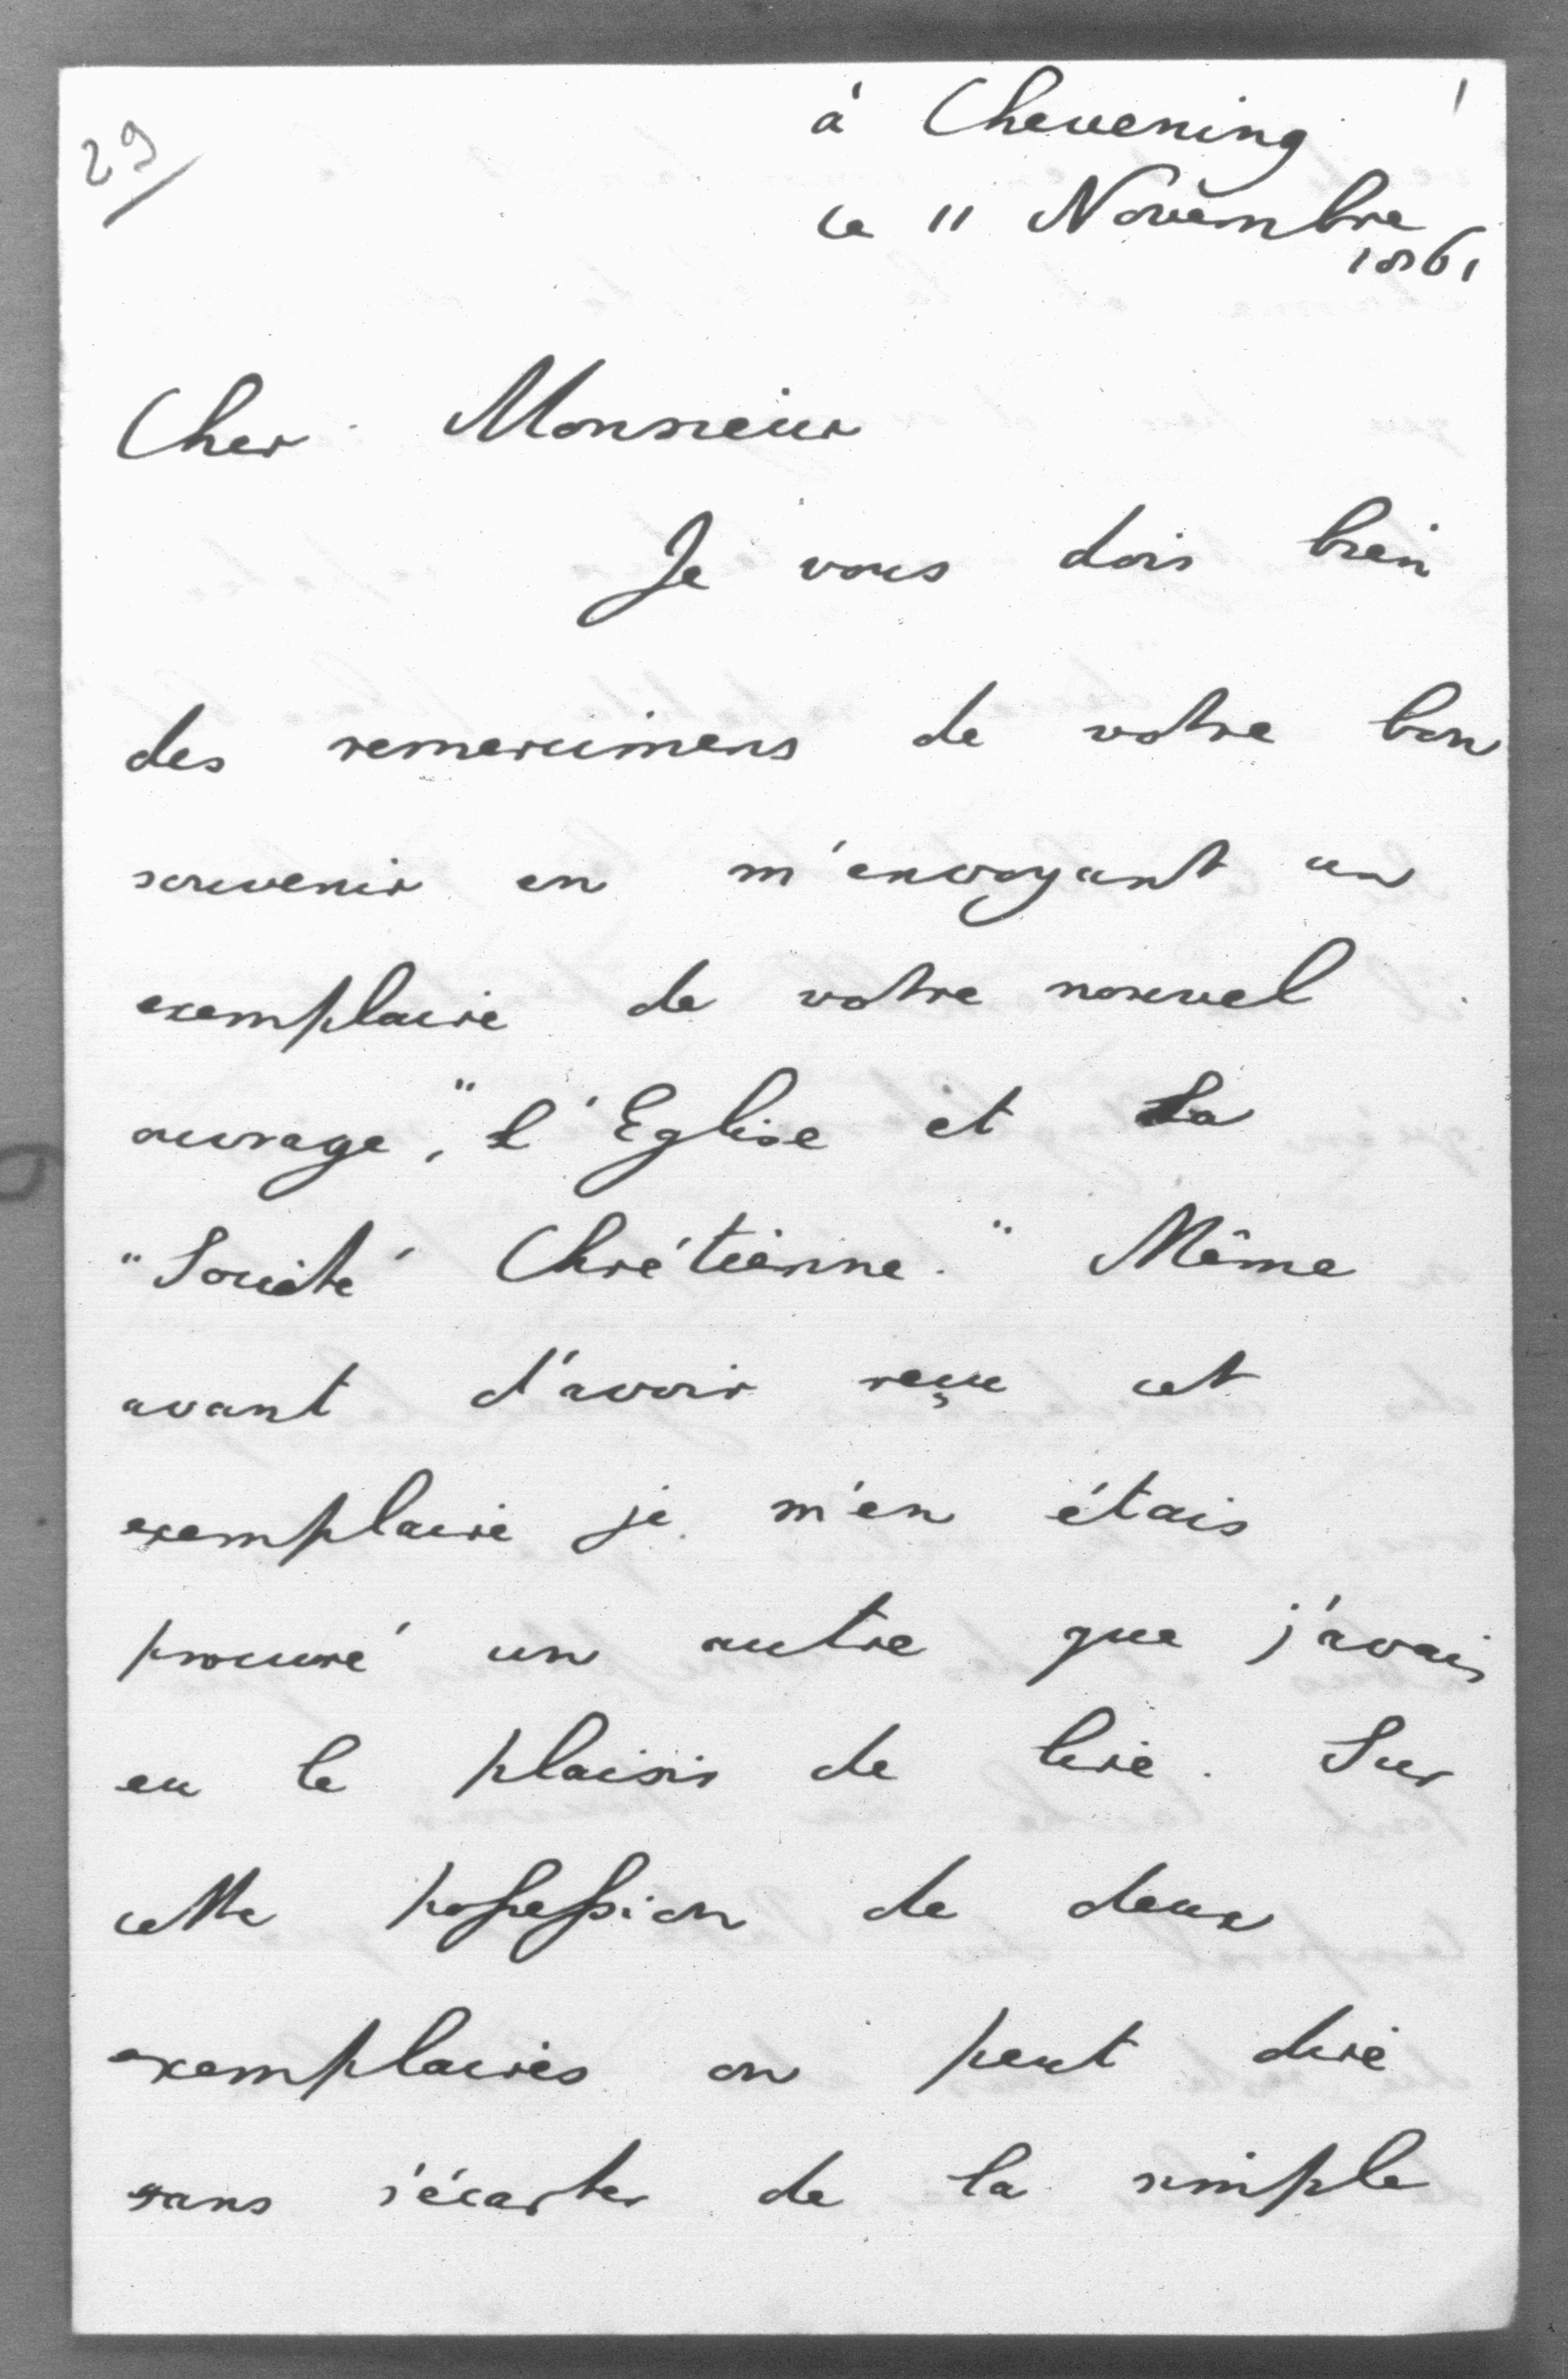 29/
1
à Chevening
ce 11 Novembre
1861
Cher Monsieur
Je vous dois bien
des remercimens de votre bon
souvenir en m'envoyant un
exemplaire de votre nouvel
ouvrage, "l'Eglise et la
"Société Chrétienne." Même
avant d'avoir reçu cet
exemplaire je m'en étais
procuré un autre que j'avais
eu le plaisir de lire. Sur
cette possession de deux
exemplaires on peut dire
sans s'écarter de la simple